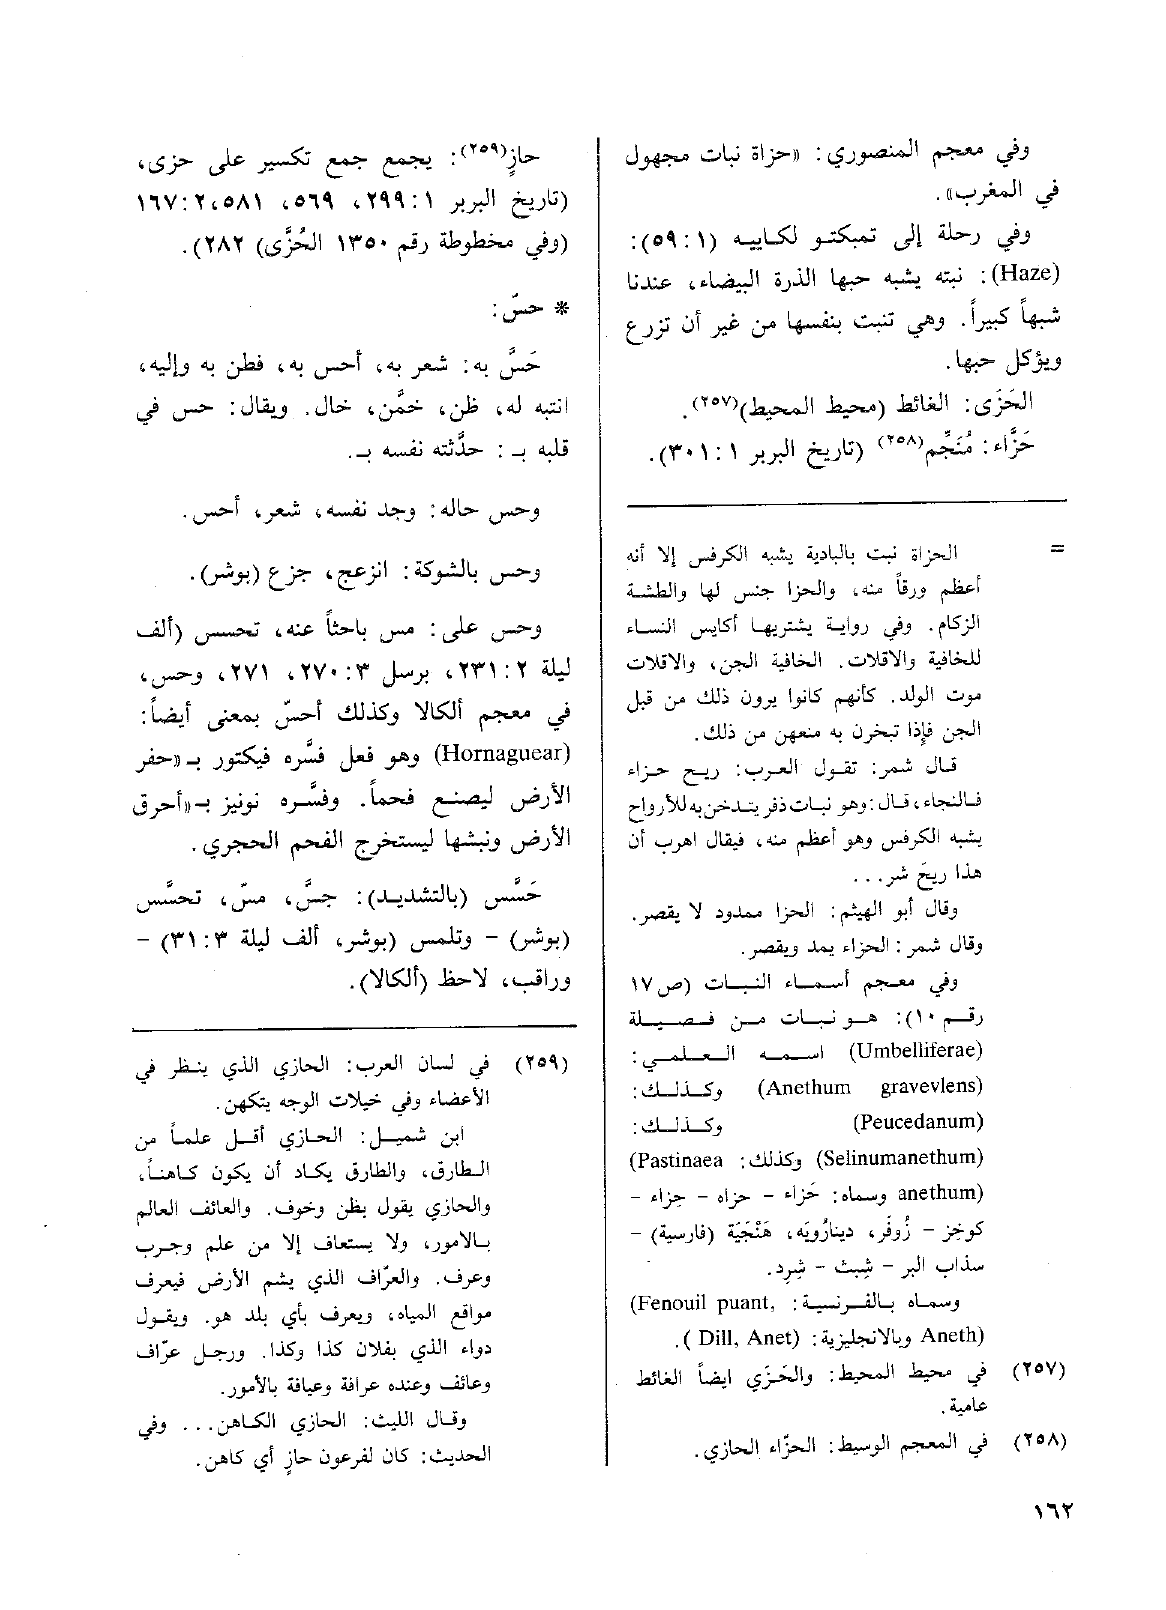 وفي معجم المنصوري: «حزاة نبات مجهول
في المغرب».
وفي رحلة إلى تمبكتو لكاييه (١: ٥٩):
(Haze): نبته يشبه حبها الذرة البيضاء، عندنا
شبهاً كبيراً. وهي تنبت بنفسها من غير أن تزرع
ويؤكل حبها.
الحَزَى: الغائط (محيط المحيط)(٢٥٧).
حَزَّاء: مُنَجِّم(٢٥٨) (تاريخ البربر ١: ٣٠١).
= الحزاة نبت بالبادية يشبه الكرفس إلا أنه
أعظم ورقاً منه، والحزا جنس لها والطشة
الزكام. وفي رواية يشتريها أكايس النساء
للخافية والاقلات. الخافية الجن، والاقلات
موت الولد. كأنهم كانوا يرون ذلك من قبل
الجن فإذا تبخرن به منعهن من ذلك.
قال شمر: تقول العرب: ريح حزاء
فالنجاء، قال: وهو نبات ذفر يتدخن به للأرواح
يشبه الكرفس وهو أعظم منه، فيقال اهرب أن
هذا ريحَ شر...
وقال أبو الهيثم: الحزا ممدود لا يقصر.
وقال شمر: الحزاء يمد ويقصر.
وفي معجم أسماء النبات (ص١٧
رقم ١٠): هو نبات من فصيلة
(Umbelliferae) اسمه العلمي:
(Anethum gravevlens) وكذلك:
(Peucedanum) وكذلك:
(Selinumanethum) وكذلك: (Pastinaea
anethum) وسماه: حَزاء - حزاه - حِزاء -
كوخز - زُوفَر، دينارُويَه، هَنْجَيَة (فارسية) -
سذاب البر - شِبث - شِرِد.
وسماه بالفرنسية: (Fenouil puant,
Aneth) وبالانجليزية: (Dill, Anet ).
(٢٥٧) في محيط المحيط: والحَزَي ايضاً الغائط
عامية.
(٢٥٨) في المعجم الوسيط: الحزّاء الحازي.
حازٍ(٢٥٩): يجمع جمع تكسير على حزى،
(تاريخ البربر ١: ٢٩٩، ٥٦٩، ٥٨١،٢: ١٦٧
(وفي مخطوطة رقم ١٣٥٠ الحُزَّى) ٢٨٢).
* حسّ:
حَسَّ به: شعر به، أحس به، فطن به وإليه،
انتبه له، ظن، خمَّن، خال. ويقال: حس في
قلبه بـ : حدَّثته نفسه بـ.
وحس حاله: وجد نفسه، شعر، أحس.
وحس بالشوكة: انزعج، جزع (بوشر).
وحس على: مس باحثاً عنه، تحسس (ألف
ليلة ٢: ٢٣١، برسل ٣: ٢٧٠، ٢٧١، وحس،
في معجم ألكالا وكذلك أحسّ بمعنى أيضاً:
(Hornaguear) وهو فعل فسَّره فيكتور بـ «حفر
الأرض ليصنع فحماً. وفسَّره نونيز بـ«أحرق
الأرض ونبشها ليستخرج الفحم الحجري.
حَسَّس (بالتشديد): جسَّ، مسّ، تحسَّس
(بوشر) - وتلمس (بوشر، ألف ليلة ٣: ٣١) -
وراقب، لاحظ (ألكالا).
(٢٥٩) في لسان العرب: الحازي الذي ينظر في
الأعضاء وفي خيلات الوجه يتكهن.
ابن شميل: الحازي أقل علماً من
الطارق، والطارق يكاد أن يكون كاهناً،
والحازي يقول بظن وخوف. والعائف العالم
بالامور، ولا يستعاف إلا من علم وجرب
وعرف. والعرّاف الذي يشم الأرض فيعرف
مواقع المياه، ويعرف بأي بلد هو. ويقول
دواء الذي بفلان كذا وكذا. ورجل عرّاف
وعائف وعنده عرافة وعيافة بالأمور.
وقال الليث: الحازي الكاهن... وفي
الحديث: كان لفرعون حازٍ أي كاهن.
١٦٢